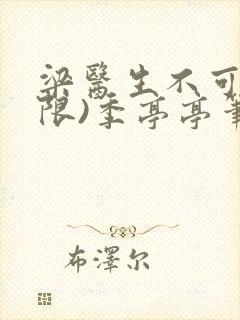 梁醫生不可
限)季亭亭
布澤尔